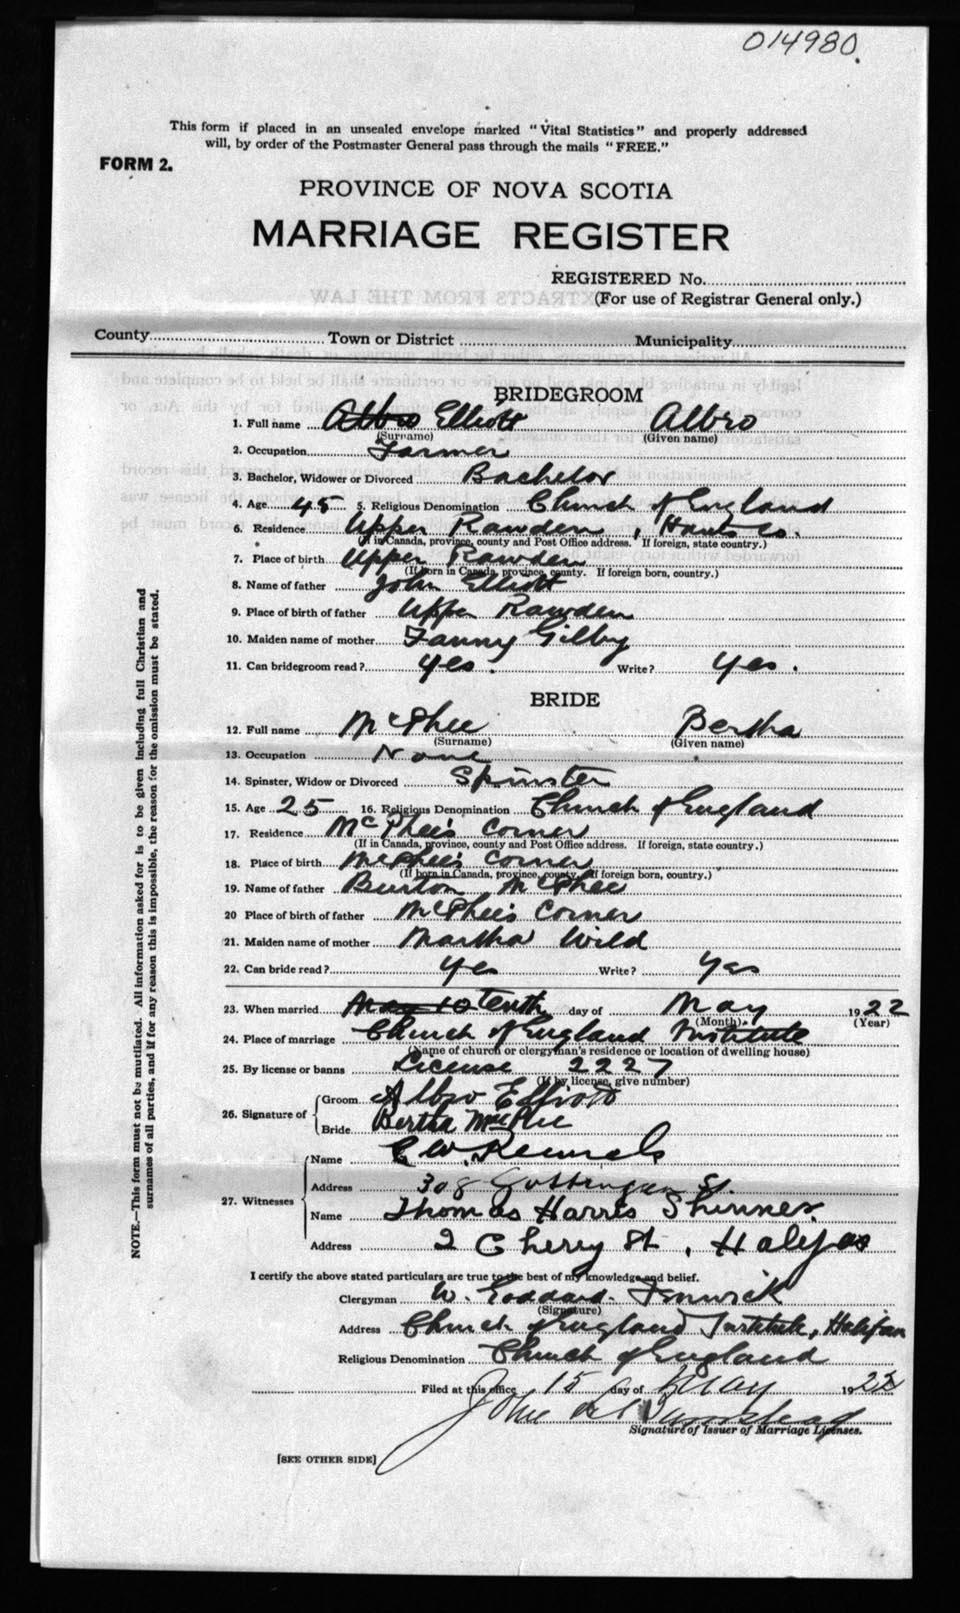 014980.
This form if placed in an unsealed envelope marked "Vital Statistics" and properly addressed
will, by order of the Postmaster General pass through the mails "FREE."
FORM 2.
PROVINCE OF NOVA SCOTIA
MARRIAGE REGISTER
REGISTERED No.
(For use of Registrar General only.)
County Town or District Municipality
BRIDEGROOM
1. Full name Albro Elliott Albro
(Surname) (Given name)
2. Occupation Farmer
3. Bachelor, Widower or Divorced Bachelor
4. Age 45 5. Religious Denomination Church of England
6. Residence Upper Rawden, Hants Co.
(If in Canada, province, county and Post Office address. If foreign, state country.)
7. Place of birth Upper Rawden
(If born in Canada, province, county. If foreign born, country.)
8. Name of father John Elliott
9. Place of birth of father Upper Rawden
10. Maiden name of mother Fanny Gilby
11. Can bridegroom read? Yes. Write? Yes.
BRIDE
12. Full name McPhee Bertha
(Surname) (Given name)
13. Occupation None
14. Spinster, Widow or Divorced Spinster
15. Age 25 16. Religious Denomination Church of England
17. Residence McPhee's Corner
(If in Canada, province, county and Post Office address. If foreign, state country.)
18. Place of birth McPhee's Corner
(If born in Canada, province, county. If foreign born, country.)
19. Name of father Burton McPhee
20 Place of birth of father McPhee's Corner
21. Maiden name of mother Martha Wild
22. Can bride read? Yes Write? Yes
23. When married May 10 Tenth day of May 1922
(Month) (Year)
24. Place of marriage Church of England Institute
(Name of church or clergyman's residence or location of dwelling house)
25. By license or banns License 2227
(If by license, give number)
26. Signature of Groom Albro Elliott
Bride Bertha McPhee
27. Witnesses Name
Address 308 Gottingen St.
Name Thomas Harris Skinner.
Address 2 Cherry St, Halifax
I certify the above stated particulars are true to the best of my knowledge and belief.
Clergyman W. Goddard Fenwick
(Signature)
Address Church of England Institute, Halifax
Religious Denomination Church of England
Filed at this office 15 day of May 1922
John
Signature of Issuer of Marriage Licenses.
[SEE OTHER SIDE]
NOTE.—This form must not be mutilated. All information asked for is to be given including full Christian and
surnames of all parties, and if for any reason this is impossible, the reason for the omission must be stated.